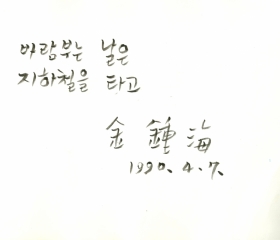 바람부는 날은
지하철을 타고
金鍾海
1990. 4. 7.